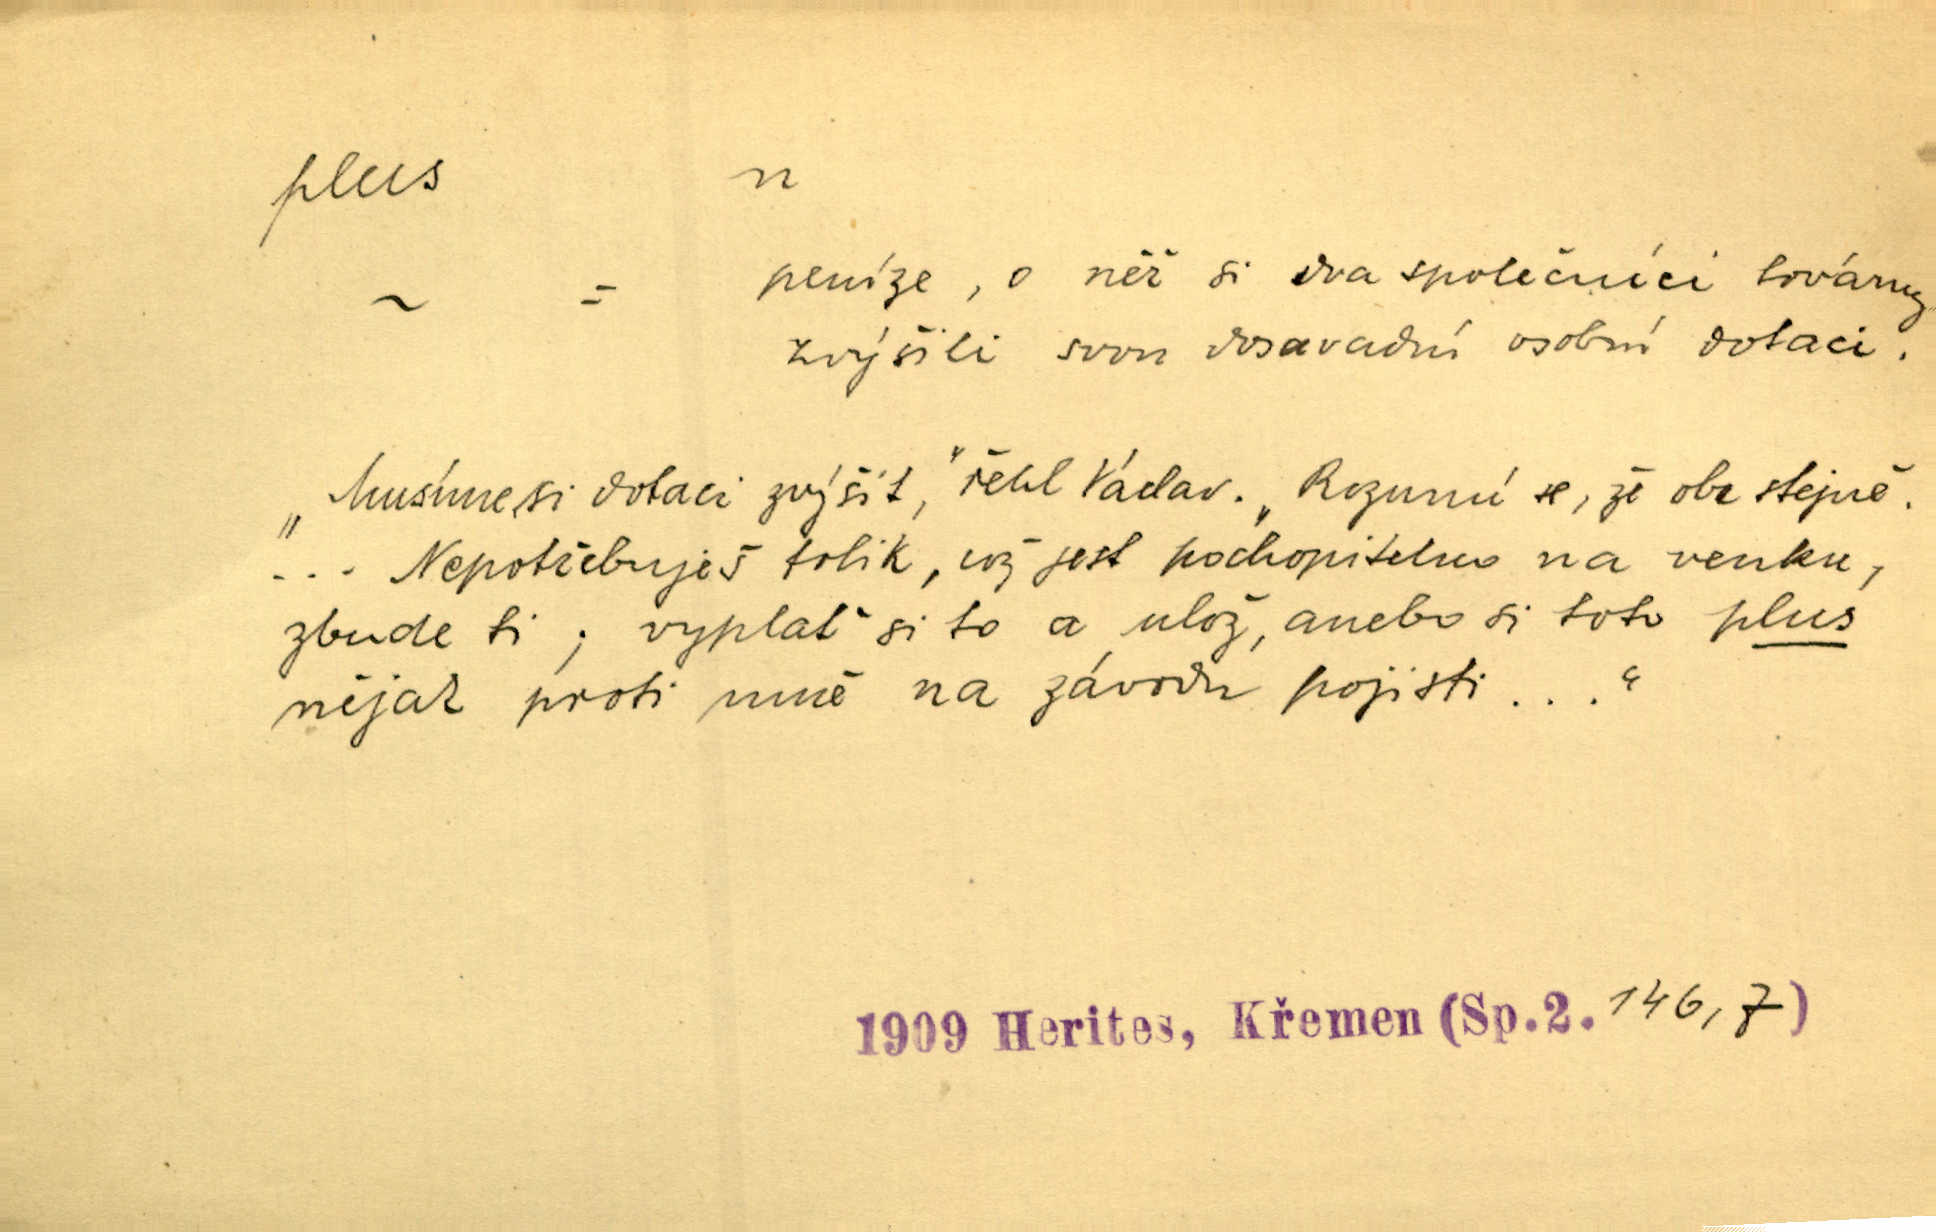 plus n
~ = peníze, o něž si dva společníci továrny
zvýšili svou dosavadní osobní dotaci.
„Musíme si dotaci zvýšit," řekl Václav. „Rozumí se, že oba stejně.
... Nepotřebuješ tolik, což jest pochopitelno na venku,
zbude ti; vyplať si to a ulož, anebo si toto plus
nějak proti mně na závodu pojisti ...“
1909 Herites, Křemen (Sp.2. 146,7)